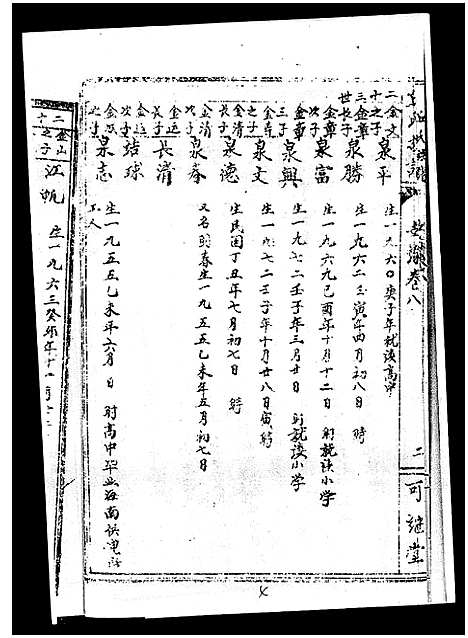 卷八
二
可继堂
二十三世
金文之子
泉平
生一九六〇庚子年就读高中
金章长子
泉勝
生一九六二壬寅年四月初八日 時
金章次子
泉富
生一九六九己酉年十月十二日 時就读小学
金章三子
泉興
生一九七二壬子年三月廿日 時就读小学
金清之子
泉文
生一九七二壬子年十月廿八日寅時
金清長子
泉德
生民国丁丑年七月初七日 時
泉春
又名明春生一九五五乙未年五月初七日
金运長子
長清
金运次子
喆球
金之子
泉志
生一九五五乙未年六月 日 時高中毕业海南供电
工人
二十
金山之子
江帆
生一九六三癸卯年十一月十二